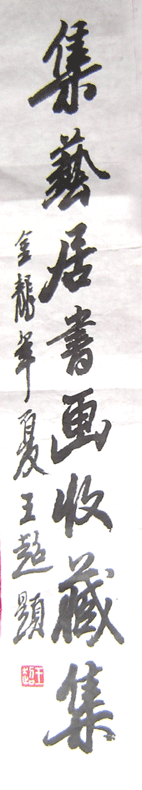 集藝居書画收藏集
金龍年夏王超題